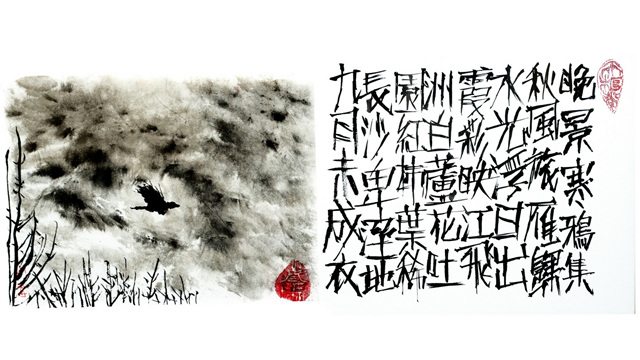 晚景寒鴉集
秋風旅雁歸
水光浮日出
霞彩映江飛
洲白蘆花吐
園紅柿葉稀
長沙卑溼地
九月未成衣